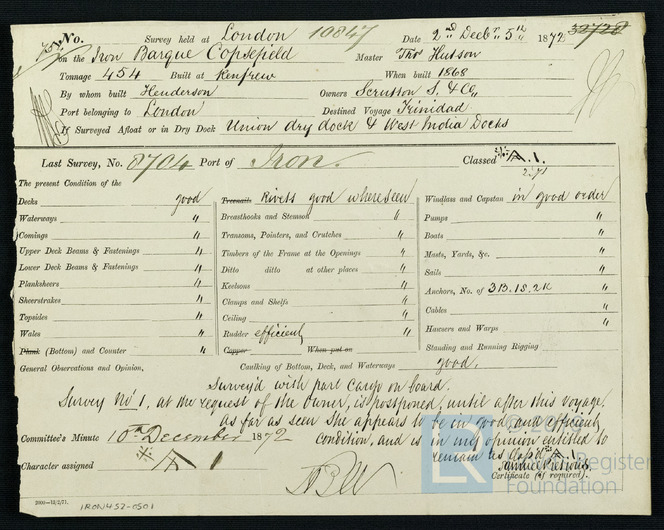 No. Survey held at London 10847 Date 2nd Decbr 5th 1872 38728
on the Iron Barque Copsefield Master Thos Hutson
Tonnage 454 Built at Renfrew When built 1868
By whom built Henderson Owners Scrutton S. & Co
Port belonging to London Destined Voyage Trinidad
If Surveyed Afloat or in Dry Dock Union dry dock & West India Docks
Last Survey, No. 8704 Port of Iron. Classed A.1.
2.71
The present Condition of the
Decks good Treenails Rivets good where seen Windlass and Capstan in good order
Waterways " Breasthooks and Stemson " Pumps "
Comings " Transoms, Pointers, and Crutches " Boats "
Upper Deck Beams & Fastenings " Timbers of the Frame at the Openings " Masts, Yards, &c. "
Lower Deck Beams & Fastenings " Ditto ditto at other places " Sails "
Planksheers " Keelsons " Anchors, No. of 3B.1S.2K "
Sheerstrakes " Clamps and Shelfs " Cables "
Topsides " Ceiling " Hawsers and Warps "
Wales " Rudder efficient " Standing and Running Rigging
Plank (Bottom) and Counter " Copper When put on good.
General Observations and Opinion, Caulking of Bottom, Deck, and Waterways
Survey'd with part Cargo on board.
Survey No 1, at the request of the Owner, is postponed, until after this Voyage.
As far as seen She appears to be in good and efficient
Committee's Minute 10th December 1872 condition, and is in my opinion entitled to
remain as Clas'd A.1.
Character assigned A 1
Certificate (if required).
2000—12/2/71.
IRON457-0501
LR
Register
Foundation